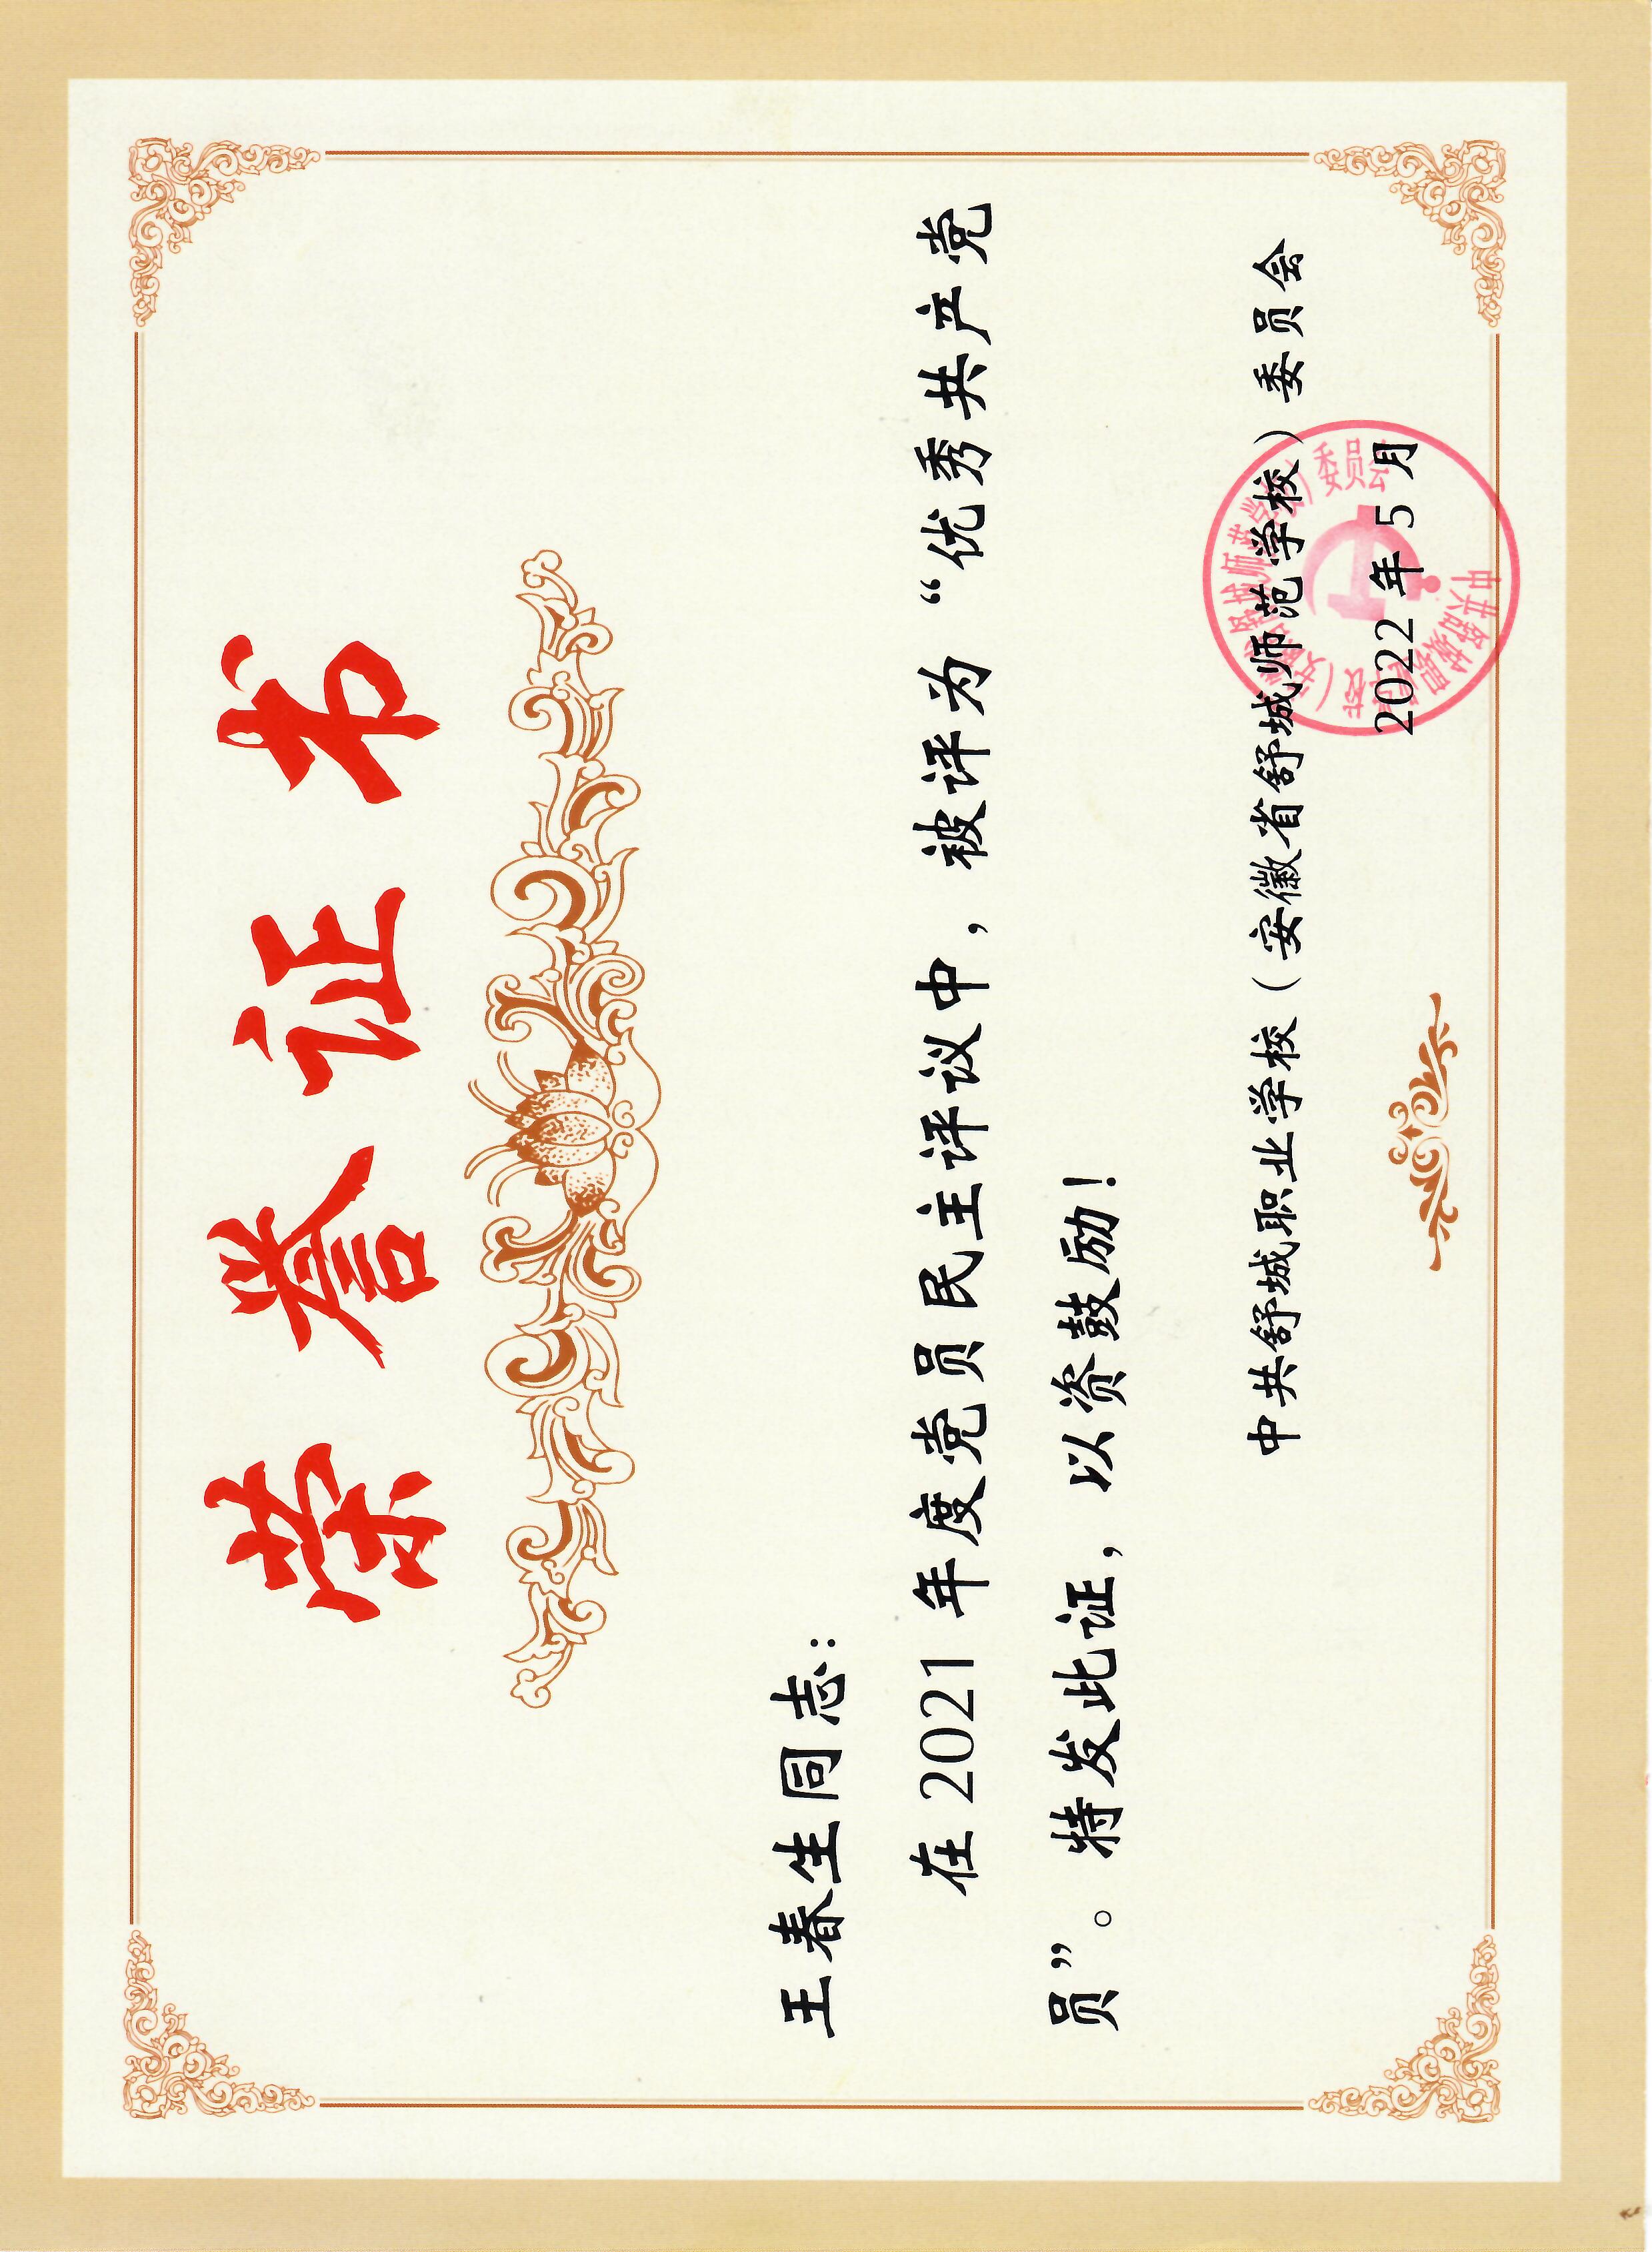 荣誉证书
王春生同志：
在 2021 年度党员民主评议中，被评为“优秀共产党
员”。特发此证，以资鼓励！
中共舒城职业学校（安徽省舒城师范学校）委员会
2022 年 5 月
中共舒城职业学校（安徽省舒城师范学校）委员会